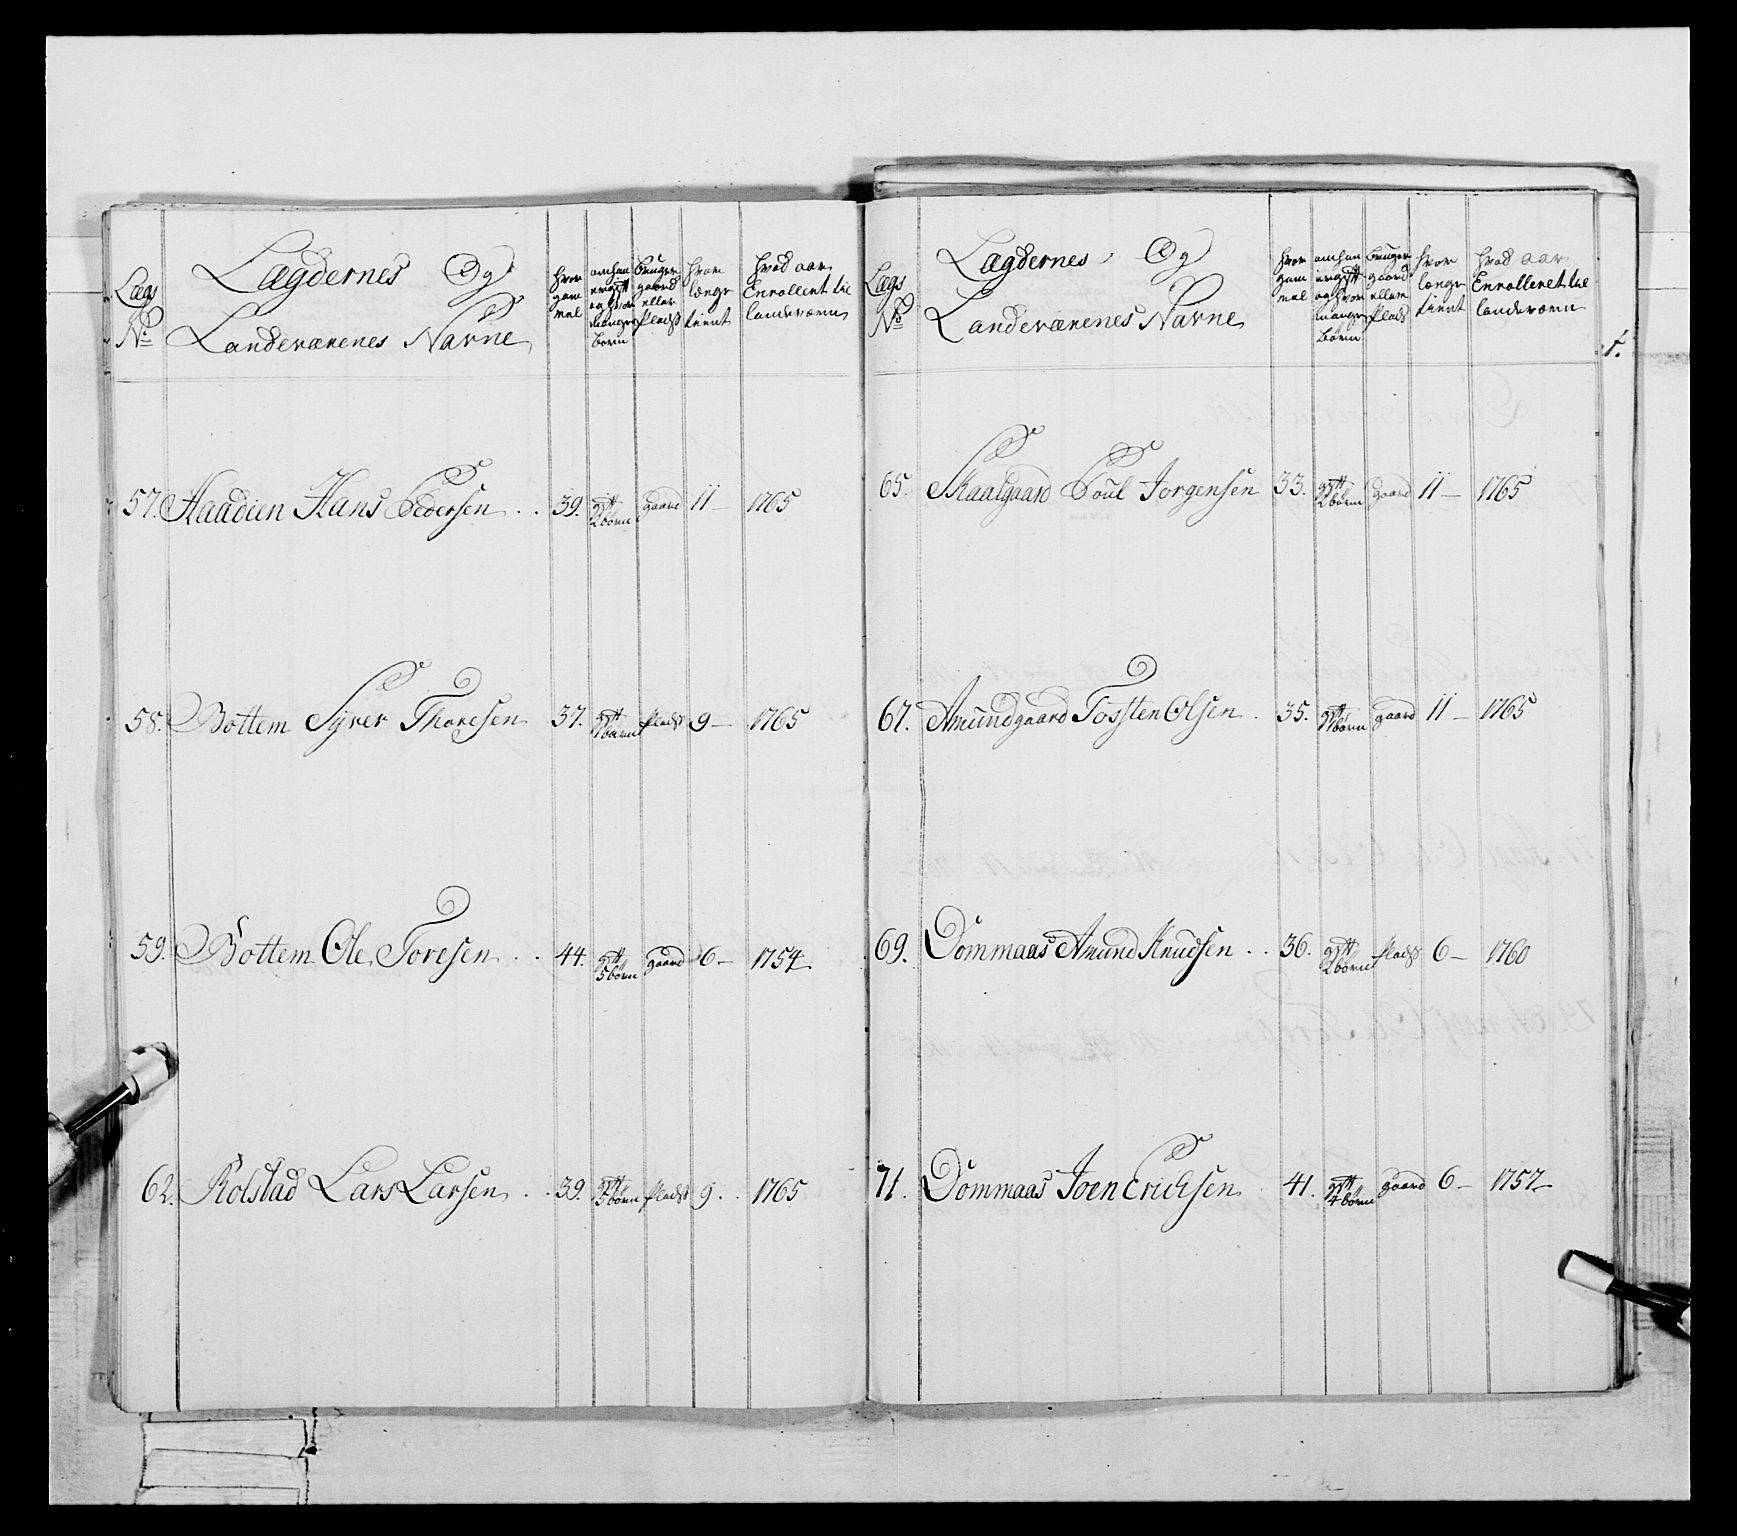 Lægs
No
Lægdernes Og
Landeværnes Navne
hvor
gam
mel
om han
er gift
og hvor
mange
børn
bruger
gaard
eller
plads
hvor
længe
tient
hvad aar
Enrolleret til
landeværn
57. Haadien Hans Pedersen . . 39. gift 2 børn gaard 11 — 1765
58. Bottem Syver Thoresen 37. gift 1 barn plads 9 — 1765
59. Bottem Ole Toresen . . 44. gift 5 børn gaard 6 — 1754
62. Rolstad Lars Larsen . . 39. gift 3 børn plads 9 . 1765
Lægs
No
Lægdernes Og
Landeværenes Navne
hvor
gam
mel
om han
er gift
og hvor
mange
børn
bruger
gaard
eller
plads
hvor
længe
tient
hvad aar
Enrolleret til
landeværn
65. Skaalgaard Poul Jorgensen 33. gift 2 børn gaard 11 — 1765
67. Amundgaard Tossten Olsen . 35. gift gaard 11 — 1765
69. Dommaas Amund Knudsen . . 36. gift 2 børn plads 6 — 1760
71. Dommaas Joen Erichsen . 41. gift 4 børn gaard 6 — 1757